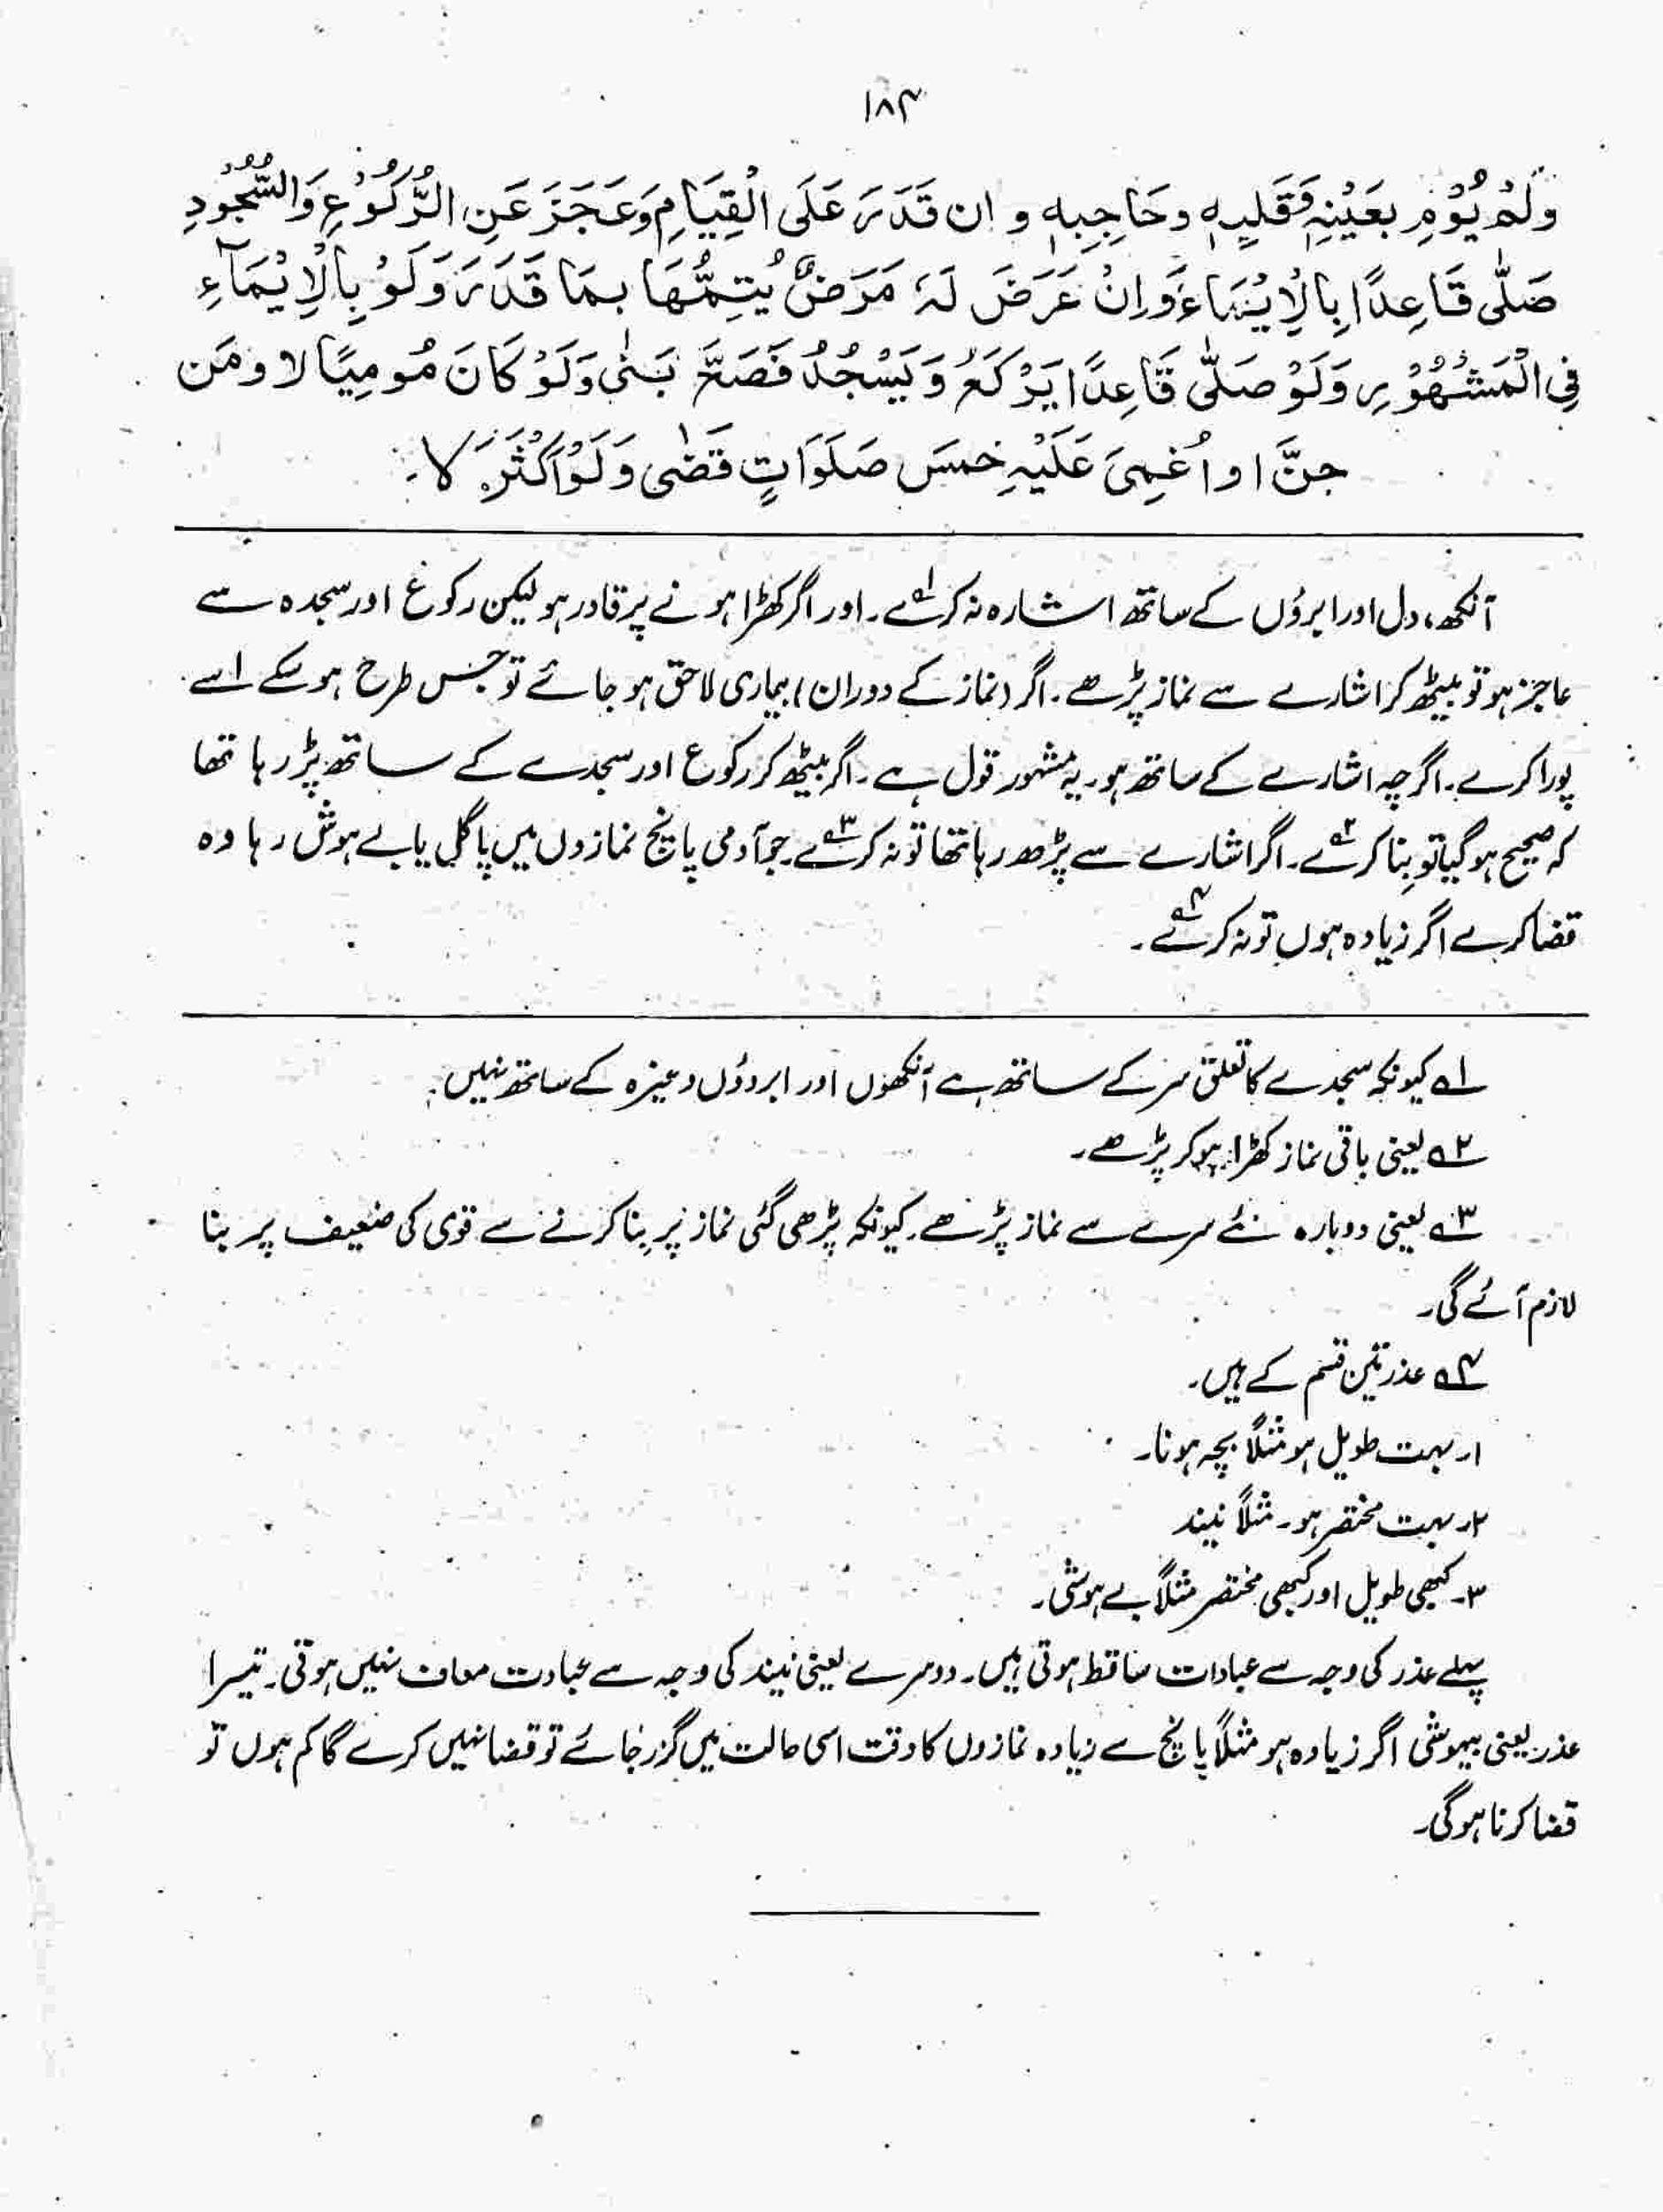 ۱۸۴
وَلَمْ يُوْمِ بعَيْنِہٖ وَقَلبِہٖ وحَاجِبِہٖ و ان قَدَرَ عَلَى الْقِيَامِ وَعَجَزَ عَنِ الرُّكُوْعِ وَالسُّجُوْدِ
صَلّٰى قَاعِدًا بِالْاِيْمَاءِ وَاِنْ عَرَضَ لَہٗ مَرَضٌ يُتِمُّهَا بمَا قَدَرَ وَلَوْ بِالْاِيْمَآءِ
فِى الْمَشْهُوْرِ وَلَوْ صَلّٰى قَاعِدًا يَرْكَعُ وَيَسْجُدُ فَصَحَّ بَنٰى وَلَوْ كَانَ مُومِيًا لا ومَن
جنَّ او اُغمِىَ عَلَيْہِ خمسَ صَلَوَاتٍ قَضٰى وَلَوْ اَكْثَرَ لا۔
آنکھ، دل اور ابروُں کے ساتھ اشارہ نہ کرے۱؎۔ اور اگر کھڑا ہونے پر قادر ہو لیکن رکوع اور سجدہ سے
عاجز ہو تو بیٹھ کر اشارے سے نماز پڑھے۔ اگر (نماز کے دوران) بیماری لاحق ہو جائے تو جس طرح ہو سکے اسے
پورا کرے۔ اگرچہ اشارے کے ساتھ ہو۔ یہ مشہور قول ہے۔ اگر بیٹھ کر رکوع اور سجدے کے ساتھ پڑ رہا تھا
کہ صحیح ہو گیا تو بِنا کرے۲؎۔ اگر اشارے سے پڑھ رہا تھا تو نہ کرے۳؎۔ جو آدمی پانچ نمازوں میں پاگل یا بے ہوش رہا وہ
قضا کرے اگر زیادہ ہوں تو نہ کرے۴؎۔
۱؎ کیونکہ سجدے کا تعلق سر کے ساتھ ہے آنکھوں اور ابروؤں وغیرہ کے ساتھ نہیں۔
۲؎ یعنی باقی نماز کھڑا ہو کر پڑھے۔
۳؎ یعنی دوبارہ نئے سرے سے نماز پڑھے۔ کیونکہ پڑھی گئی نماز پر بِنا کرنے سے قوی کی ضعیف پر بنا
لازم آئے گی۔
۴؎ عذر تین قسم کے ہیں۔
۱۔ بہت طویل ہو مثلاً بچہ ہونا۔
۲۔ بہت مختصر ہو۔ مثلاً نیند
۳۔ کبھی طویل اور کبھی مختصر مثلاً بے ہوشی۔
پہلے عذر کی وجہ سے عبادات ساقط ہوتی ہیں۔ دوسرے یعنی نیند کی وجہ سے عبادت معاف نہیں ہوتی۔ تیسرا
عذر یعنی بیہوشی اگر زیادہ ہو مثلاً پانچ سے زیادہ نمازوں کا وقت اسی حالت میں گزر جائے تو قضا نہیں کرے گا کم ہوں تو
قضا کرنا ہوگی۔